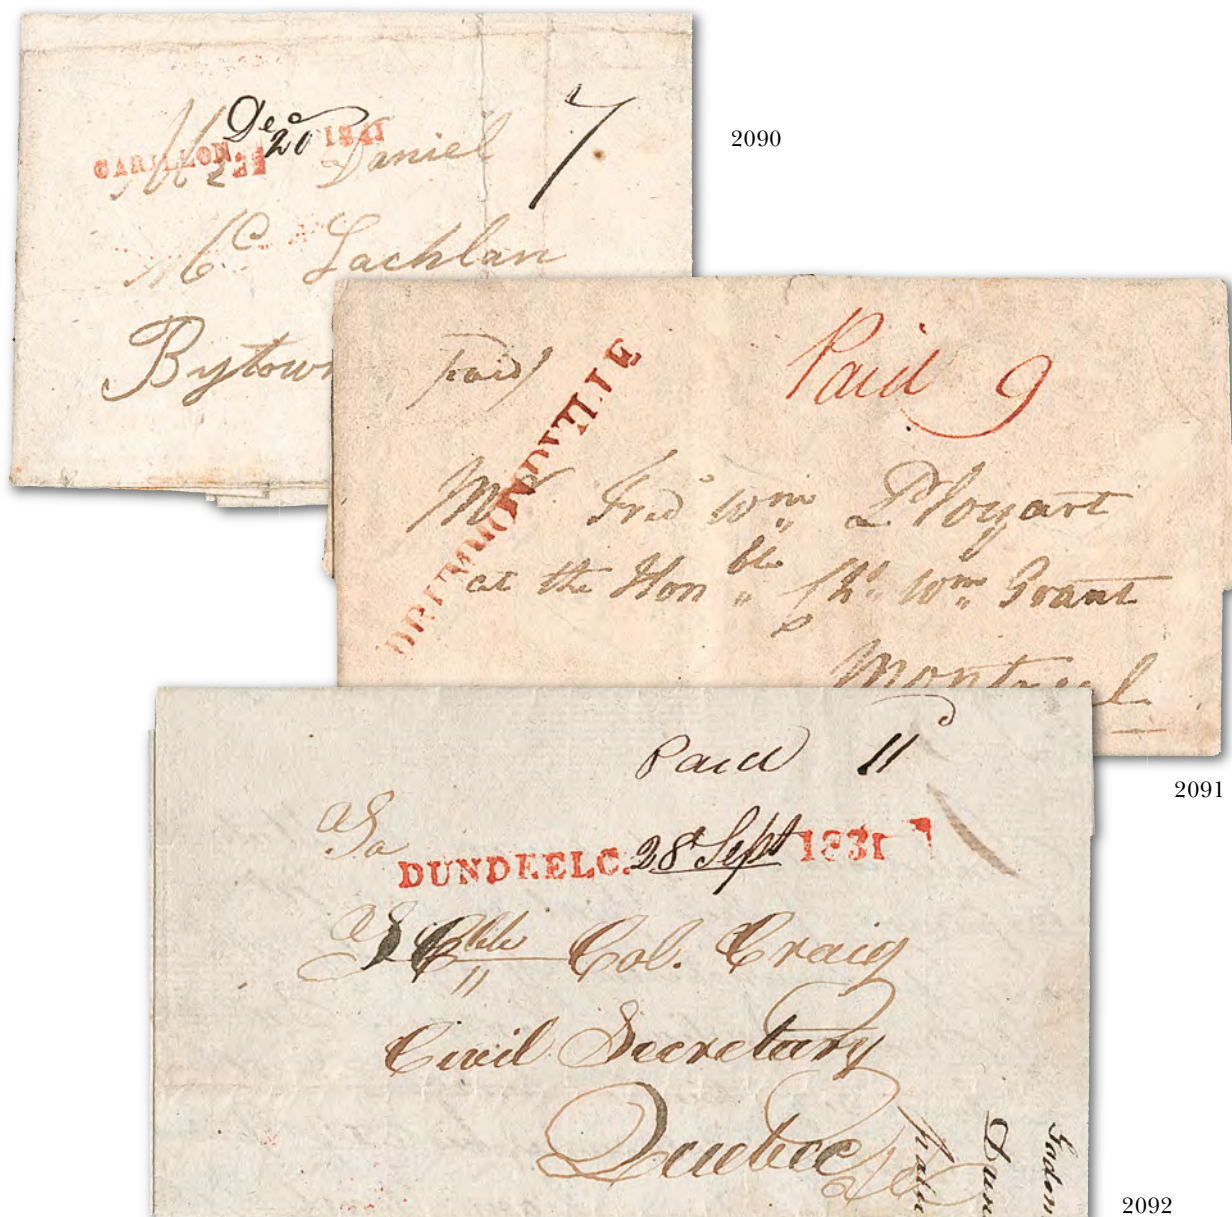 Dec 20
7
CARILLON 1841
Mr Daniel
Mc Lachlan
Bytown
2090
Paid
DRUMMONDVILLE
Paid 9
Mr Fred wm Plogart
at the Honble Chs wm Grant
Montreal
2091
Paid 11
DUNDEE L.C. 28 Sept 1831
Col. Craig
Civil Secretary
Quebec
2092